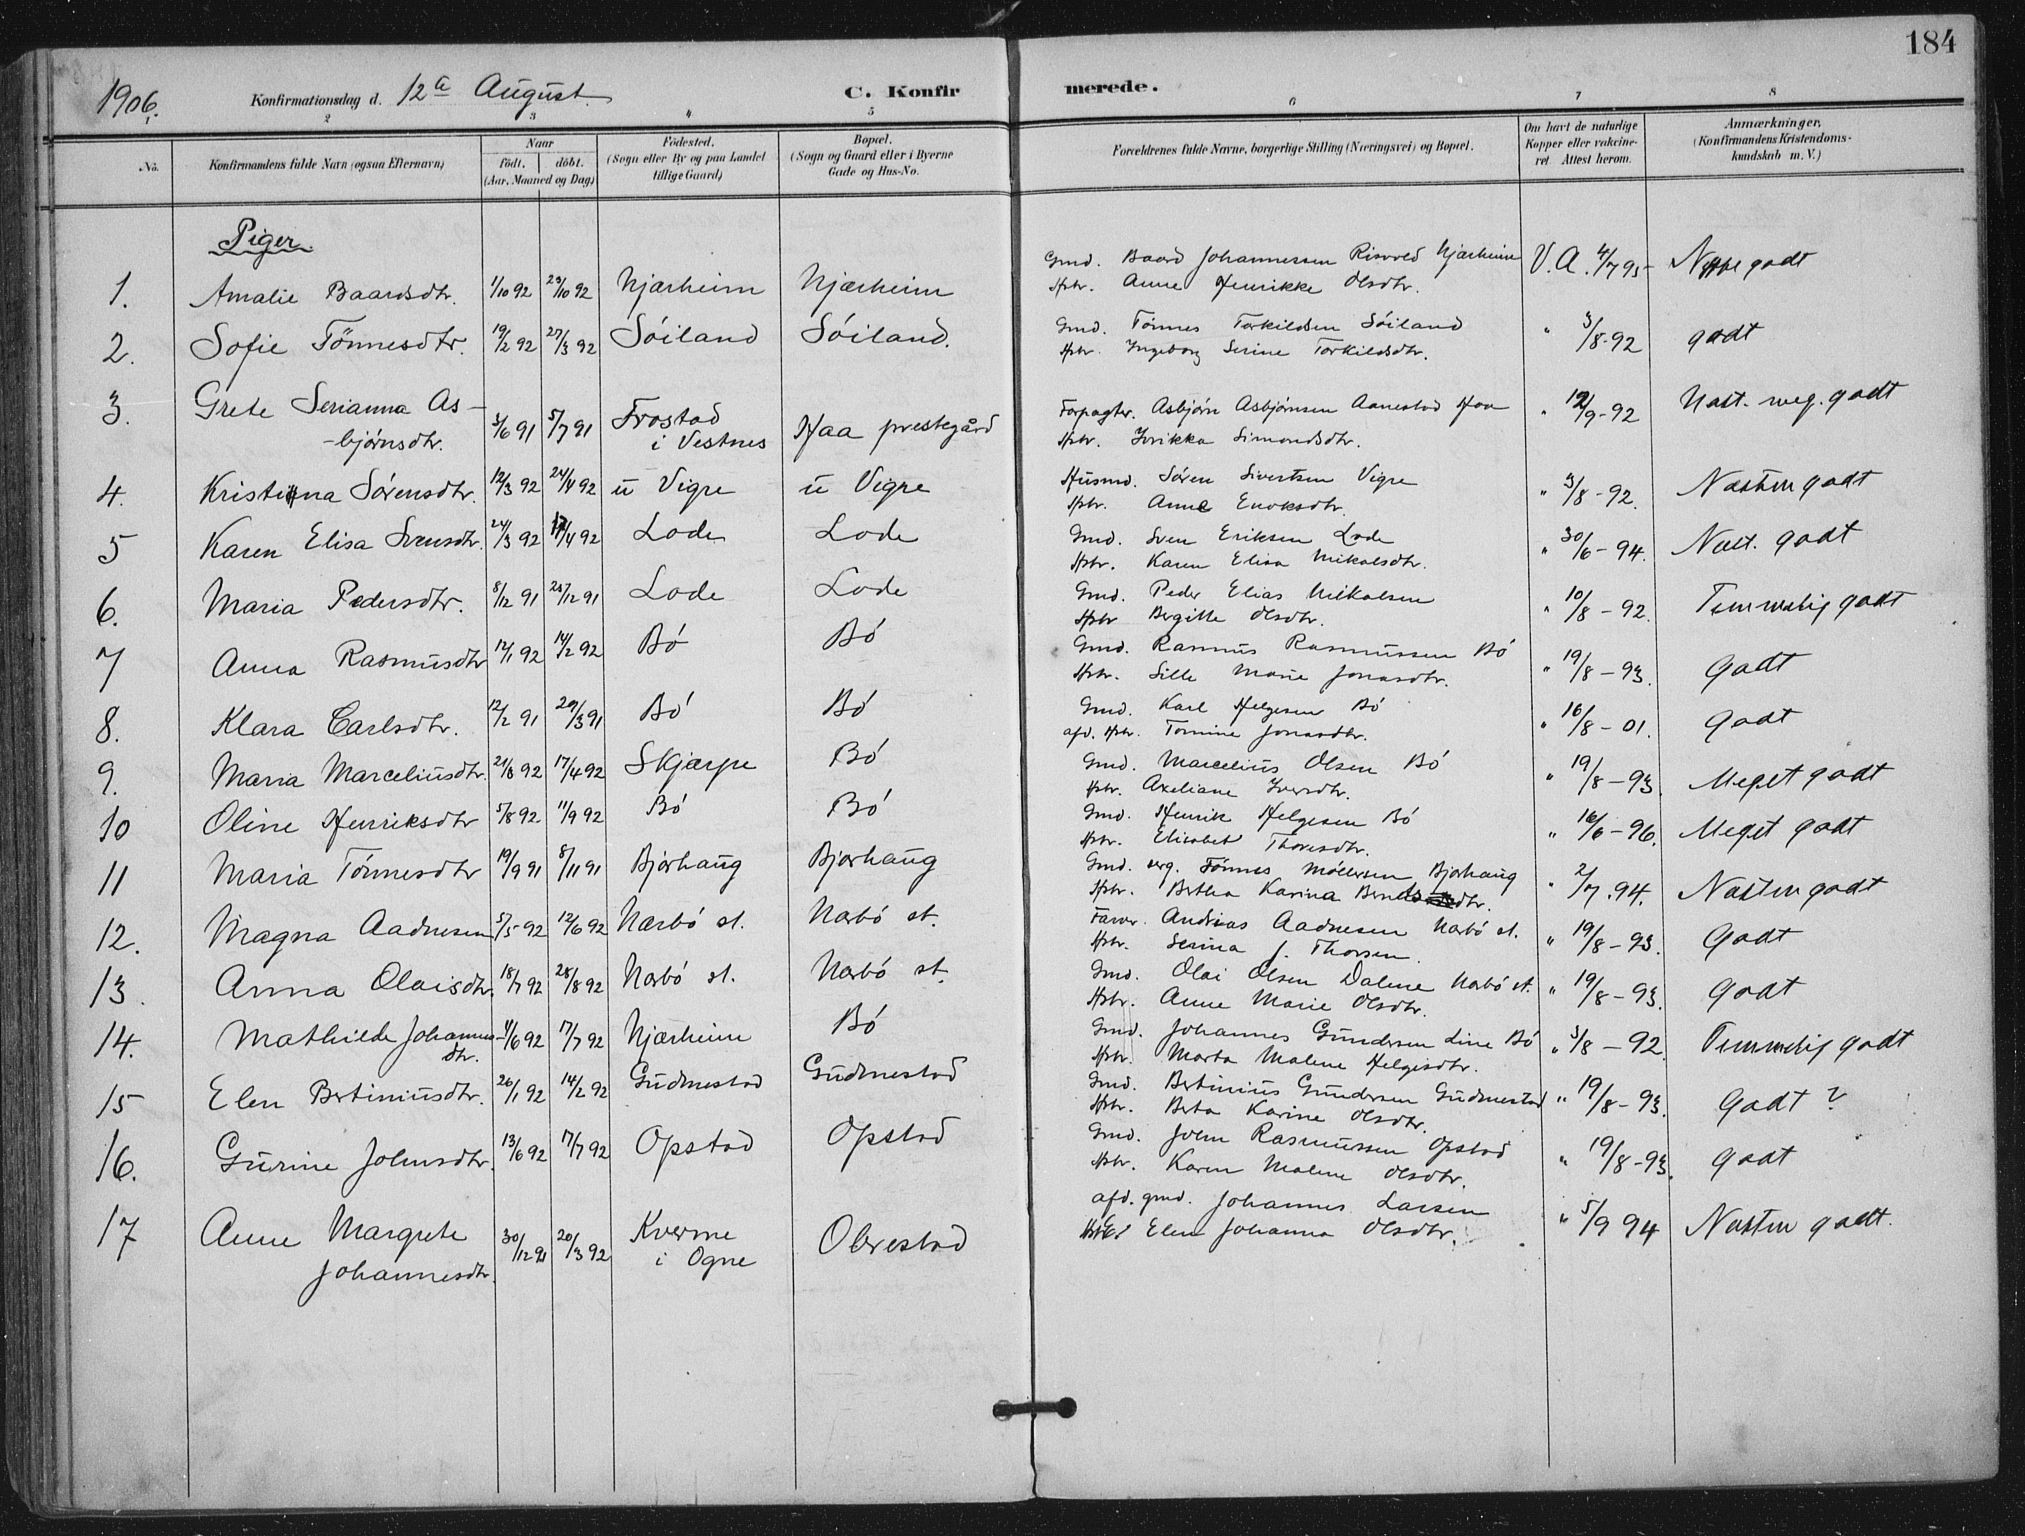 184
1906. Konfirmationsdag d. 12te August. C. Konfirmerede.
1 2 3 4 5 6 7 8
No. Konfirmandens fulde Navn (ogsaa Efternavn) Naar født. døbt. (Aar, Maaned og Dag) Fødested. (Sogn eller By og paa Landet tillige Gaard) Bopæl. (Sogn og Gaard eller i Byerne Gade og Hus-No. Forældrenes fulde Navne, borgerlige Stilling (Næringsvei) og Bopæl. Om havt de naturlige Kopper eller vakcineret. Attest herom. Anmærkninger. (Konfirmandens Kristendomskundskab m. V.)
Piger.
1. Amalie Baardsdtr. 1/10 92 29/10 92 Njærheim Njærheim Gmd. Baard Johannessen Risvold Njærheim V. A. 4/7 95 godt
Hstr. Anne Henrikke Olsdtr.
2. Sofie Tønnesdtr. 19/2 92 27/3 92 Søiland Søiland. Gmd. Tønnes Torkildsen Søiland " 3/8-92 godt
Hstr. Ingeborg Serine Torkildsdtr.
3. Grete Serianna As- Forpagter. Asbjørn Asbjørnsen Aanestad Haa " 12/9-92 Næst. meg. godt
-bjørnsdtr. 3/6 91 5/7 91 Frostad i Vestnes Haa prestegård Hstr. Simondsdtr.
4. Kristina Sørensdtr. 12/3 92 24/4 92 u Vigre u Vigre Husmd. Søren Sivertsen Vigre " 3/8-92. Næsten godt
Hstr. Anne Enoksdtr.
5 Karen Elisa Svensdtr. 24/3 92 17/4 92 Lode Lode Gmd. Sven Eriksen Lode " 30/6-94. Næst. godt
Hstr. Karen Elisa Mikalsdtr.
6. Maria Pedersdtr. 8/12 91 25/12 91 Lode Lode Gmd. Peder Elias Mikalsen " 10/8-92. Temmelig godt
Hstr Bergitte Olsdtr.
7 Anna Rasmusdtr 12/1 92 14/2 92 Bø Bø Gmd. Rasmus Rasmussen Bø " 19/8-93. Godt
Hstr. Sille Marie Jonasdtr.
8. Klara Carlsdtr. 12/2 91 29/3 91 Bø Bø Gmd. Karl Helgesen Bø " 16/8-01. Godt
afd. Hstr. Tomine Jonasdtr.
9. Maria Marceliusdtr. 21/3 92 17/4 92 Skjærpe Bø Gmd. Marcelius Olsen Bø " 19/8-93. Meget godt
Hstr. Axeliane Iversdtr.
10 Oline Henriksdtr 5/8 92. 11/9 92 Bø Bø Gmd. Henrik Helgesen Bø " 16/6-96. Meget godt
Hstr. Elisabet Thoresdtr.
11 Maria Tønnesdtr 19/9 91 8/11 91 Bjorhaug Bjorhaug Gmd. Tønnes Møllersen Bjorhaug " 2/7.94. Næsten godt
Hstr. Bertha Karina
12. Magna Aadnesen 5/5 92 12/6 92 Nærbø st. Nærbø st. Farver. Andreas Aadnesen Nærbø st. " 19/8-93. Godt
Hstr. Serina J. Thorsen.
13. Anna Olaisdtr. 18/7 92 28/8 92 Nærbø st. Nærbø st. Gmd. Olai Olsen Dalene Nærbø st. " 19/8-93. Godt
Hstr. Anne Marie Olsdtr.
14. Mathilde Johannes- dtr. 4/6 92 17/7 92 Njærheim Bø Gmd. Johannes Gundersen Line Bø " 3/8-92. Temmelig godt
Hstr. Marta Malene Helgesdtr.
15 Elen Bertiniusdtr. 26/1 92 14/2 92 Gudmestad Gudmestad Gmd. Bertinius Gundersen Gudmestad " 19/8-93. Godt?
Hstr. Berta Karine Olsdtr.
16. Gurine Johnsdtr. 13/6 92 17/7 92 Opstad Opstad Gmd. John Rasmussen Opstad " 19/8-93. godt
Hstr. Karen Malene Olsdtr.
17 Anne Margrete Johannesdtr. 30/12 91 20/3 92 Kverme i Ogne Obrestad afd. gmd. Johannes Larsen " 5/9 94 Næsten godt.
Elen Johanna Olsdtr.